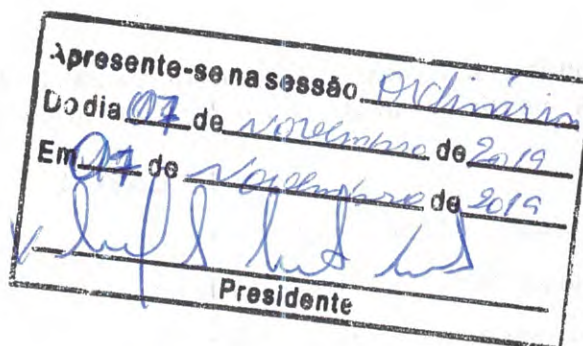 Apresente-se na sessão Ordinária
Do dia 07 de novembro de 2019
Em 07 de Novembro de 2019
Presidente